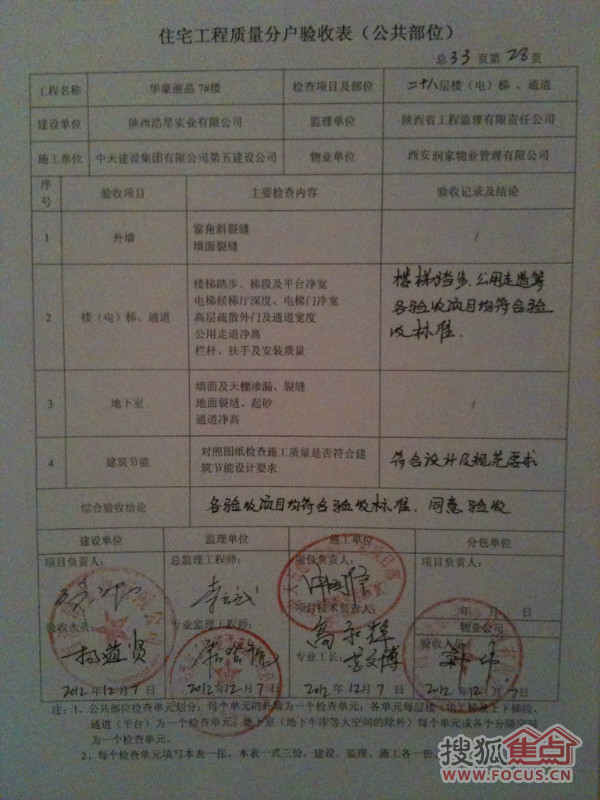 住宅工程质量分户验收表（公共部位）
总 33 页第 28 页
工程名称 华豪丽晶 7#楼 检查项目及部位 二十八层楼（电）梯、通道
建设单位 陕西浩星实业有限公司 监理单位 陕西省工程监理有限责任公司
施工单位 中天建设集团有限公司第五建设公司 物业单位 西安润家物业管理有限公司
序号 验收项目 主要检查内容 验收记录及结论
1 外墙 窗角斜裂缝
墙面裂缝 /
2 楼（电）梯、通道 楼梯踏步、梯段及平台净宽
电梯候梯厅深度、电梯门净宽
高层疏散外门及通道宽度
公用走道净高
栏杆、扶手及安装质量
楼梯踏步、公用走道等
各验收项目均符合验
收标准.
3 地下室 墙面及天棚渗漏、裂缝
地面裂缝、起砂
通道净高 /
4 建筑节能 对照图纸检查施工质量是否符合建
筑节能设计要求 符合设计及规范要求
综合验收结论 各验收项目均符合验收标准，同意验收
建设单位 监理单位 施工单位 分包单位
项目负责人： 总监理工程师： 项目负责人： 项目负责人：
项目技术负责人： 年 月 日
物业公司
验收人员： 专业监理工程师： 专业工长： 验收人员：
2012 年 12 月 7 日 2012 年 12 月 7 日 2012 年 12 月 7 日 2012 年 12 月 7 日
注：1、公共部位检查单元划分：每个单元的外墙为一个检查单元；各单元每层楼（电）梯及上下梯段、
通道（平台）为一个检查单元；地下室（地下车库等大空间的除外）每个单元或各个分隔空间
为一个检查单元。
2、每个检查单元填写本表一张，本表一式三份，建设、监理、施工各一份。
搜狐焦点
WWW.FOCUS.CN